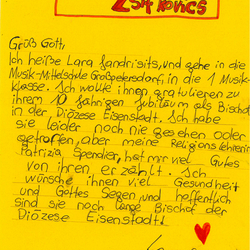 Zsifkovics
Grüß Gott!
Ich heiße Lara Jandrisits, und gehe in die
Musik-Mittelschule Großpetersdorf, in die 1 Musik-
Klasse. Ich wollte ihnen gratulieren zu
ihrem 10 jährigen Jubiläum als Bischof
in der Diözese Eisenstadt. Ich habe
sie leider noch nie gesehen oder
getroffen, aber meine Religions lehrerin
Patrizia Spendier, hat mir viel Gutes
von ihnen erzählt. Ich
wünsche ihnen viel Gesundheit
und Gottes Segen, und hoffentlich
sind sie noch lange Bischof der
Diözese Eisenstadt!